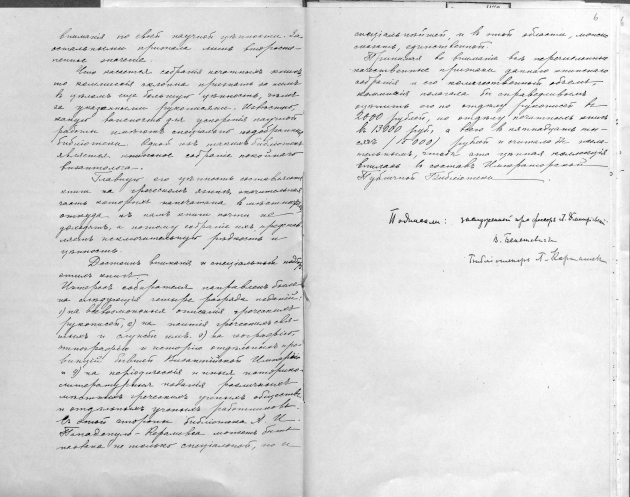 вниманія по своей научной цѣнности. За
остальными признала лишь второсте-
пенное значеніе.
Что касается собранія печатныхъ книгъ,
то комиссія склонна признать за нимъ
въ цѣломъ еще большую цѣнность, чѣмъ
за указанными рукописями. Извѣстно,
какую важность для ускоренія научной
работы имѣютъ спеціально подобранныя
библіотеки. Одной изъ такихъ библіотекъ
является книжное собраніе покойнаго
византолога.
Главную его цѣнность составляютъ
книги на греческомъ языкѣ, значительная
часть которыхъ напечатана въ мѣстностяхъ,
откуда къ намъ книги почти не
доходятъ, и потому собраніе ихъ представ-
ляетъ исключительную рѣдкость и
цѣнность.
Достоинъ вниманія и спеціальный подборъ
этихъ книгъ.
Интересъ собирателя направленъ былъ
на слѣдующія четыре разряда изданій:
1) на всевозможныя описанія греческихъ
рукописей, 2) на житія греческихъ свя-
тыхъ и службы имъ, 3) на географію,
этнографію и исторію отдѣльныхъ про-
винцій бывшей Византійской Имперіи
и 4) на періодическія и иныя историко-
литературныя изданія различныхъ
мѣстныхъ греческихъ ученыхъ обществъ
и отдѣльныхъ ученыхъ работниковъ.
Съ этой стороны библіотека А. И.
Пападопуло-Керамевса можетъ быть
названа не только спеціальной, но и
6
спеціальнѣйшей, и въ этой области, можно
сказать, единственной.
Принимая во вниманіе всѣ перечисленные
качественные признаки даннаго книжнаго
собранія и его количественный объемъ
Коммиссія полагала бы справедливымъ
оцѣнить его по отдѣлу рукописей въ
2000 рублей, по отдѣлу печатныхъ книгъ
въ 13000 руб., а всего въ пятнадцать ты-
сячъ /15000/ рублей и считала бы жела-
тельнымъ, чтобы эта цѣнная коллекція
вошла въ составъ Императорской
Публичной Библіотеки
Подписали: заслуженный профессоръ А. Дмитріевскій
В. Бенешевичъ
Библіотекарь А. Карташевъ